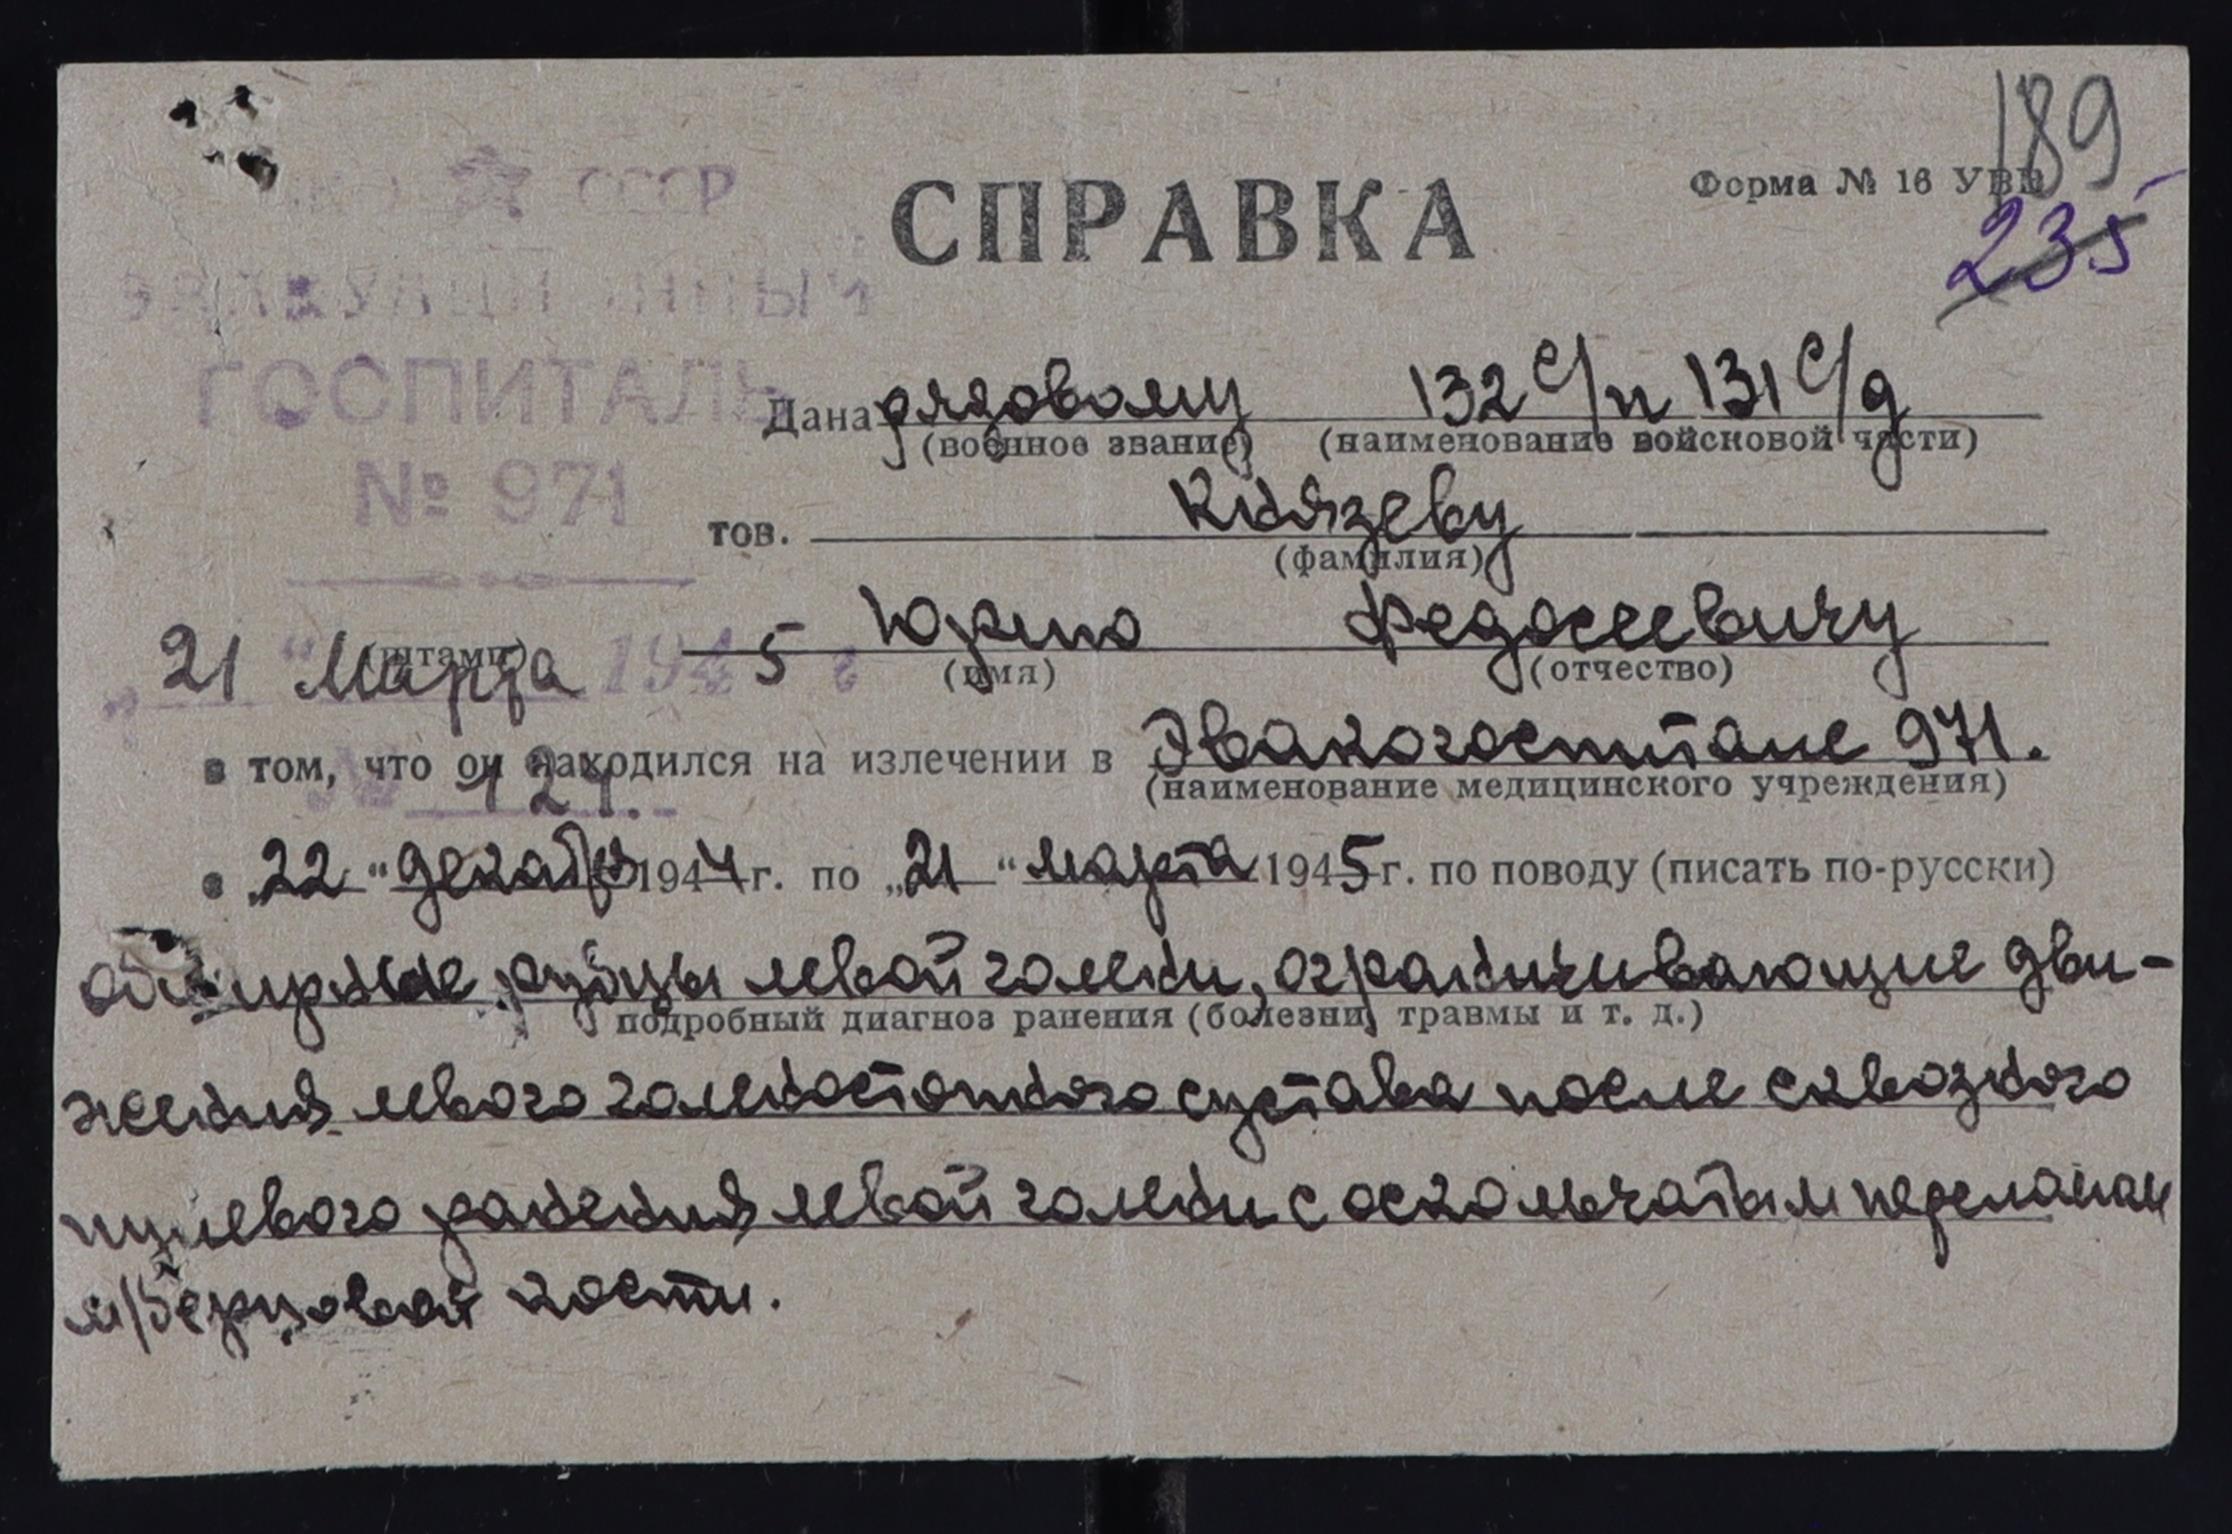 189
Форма № 16 УВВ
235
СССР
ЭВАКУАЦИОННЫЙ
ГОСПИТАЛЬ
№ 971
СПРАВКА
Дана рядовому 132 с/п 131 с/д
(военное звание) (наименование войсковой части)
тов. Князеву
(фамилия)
Юрию Федосеевичу
(имя) (отчество)
(штамп)
"21" Марта 1945 г
№ 121.
в том, что он находился на излечении в Эвакогоспитале 971.
(наименование медицинского учреждения)
с "22" декабря 1944 г. по "21" марта 1945 г. по поводу (писать по-русски)
обширные рубцы левой голени, ограничивающие дви-
подробный диагноз ранения (болезни, травмы и т. д.)
жения левого голеностопного сустава после сквозного
пулевого ранения левой голени с оскольчатым переломом
м/берцовой кости.